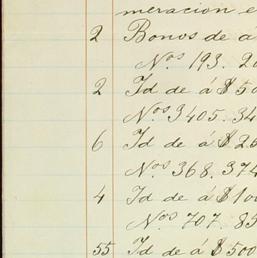 meración e
2 Bonos de a
Nos 193. 20
2 Id de á $ 50
Nos 3405. 34
6 Id de á $ 25
Nos 368. 374
4 Id de á $ 100
Nos 707. 85
55 Id de á $ 500